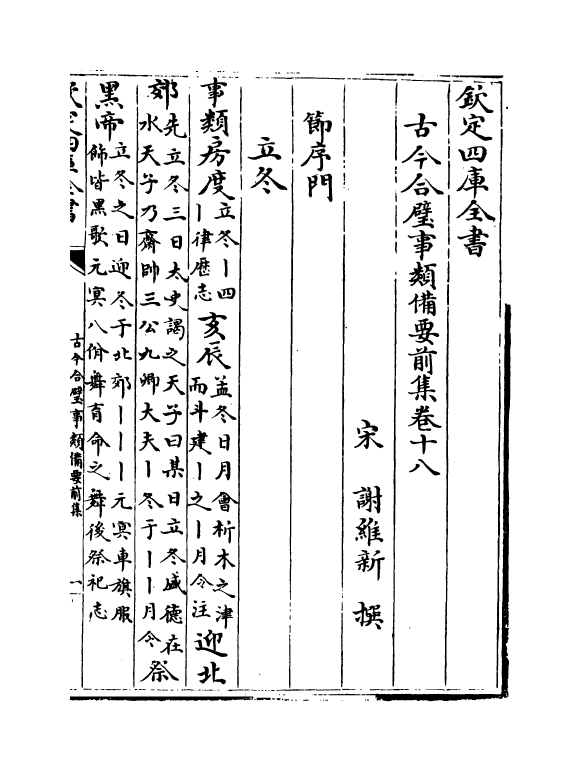 欽定四庫全書
古今合璧事類備要前集卷十八
宋　謝維新　撰
節序門
立冬
事類房度立冬丨四丨律歷志亥辰孟冬日月會析木之津而斗建丨之丨月令注迎北
郊先立冬三日太史謁之天子曰某日立冬盛德在水天子乃齋帥三公九卿大夫丨冬于丨丨月令祭
黑帝立冬之日迎冬于北郊丨丨丨元冥車旗服飾皆黑歌元冥八佾舞育命之舞後祭祀志
欽定四庫全書
古今合璧事類備要前集
一